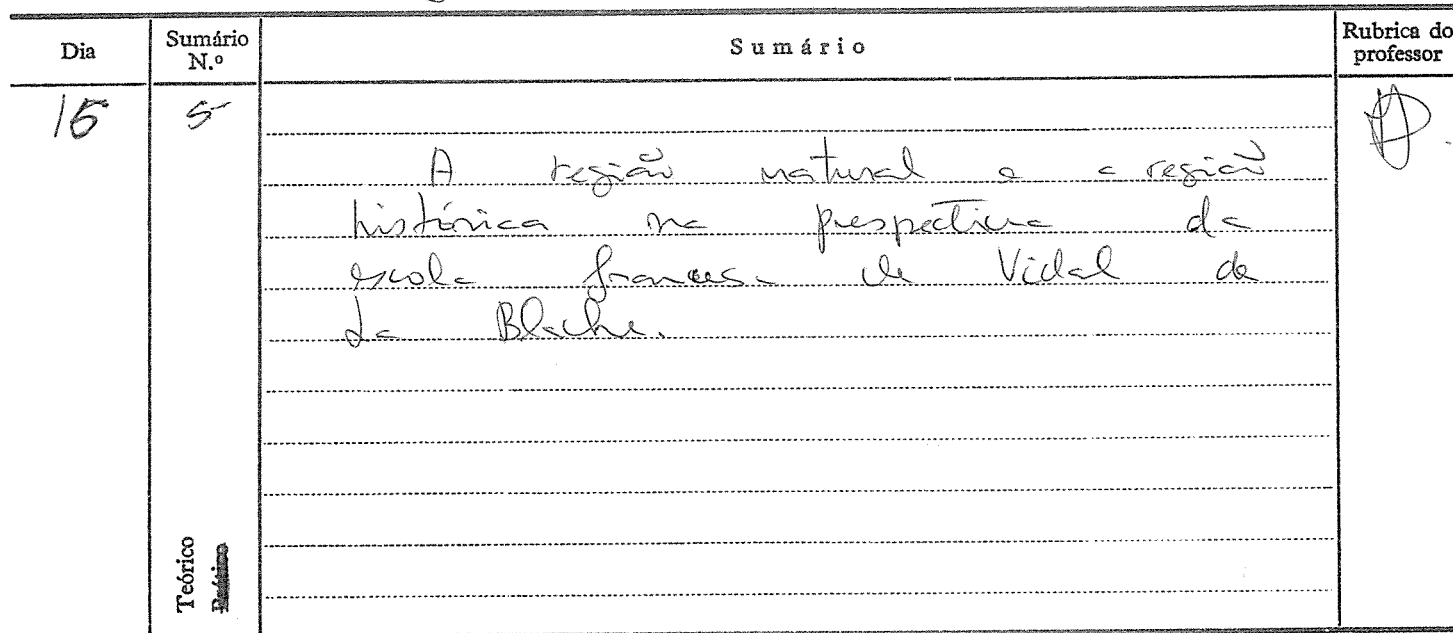 Dia Sumário N.º Sumário Rubrica do professor
15 5
A região natural e a região
histórica na prespectiva da
escola francesa de Vidal de
La Blache.
Teórico